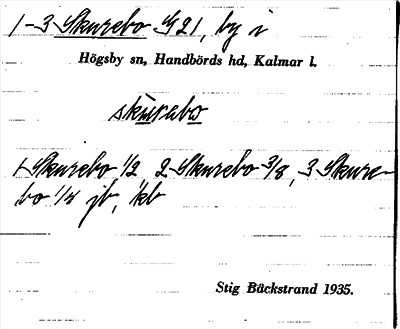 1-3 Skurebo 4/21, by i
Högsby sn, Handbörds hd, Kalmar l.
skurebo
1 Skurebo 1/2 2 Skurebo 3/8, 3 Skure-
bo 1/8 jb, kb
Stig Bäckstrand 1935.